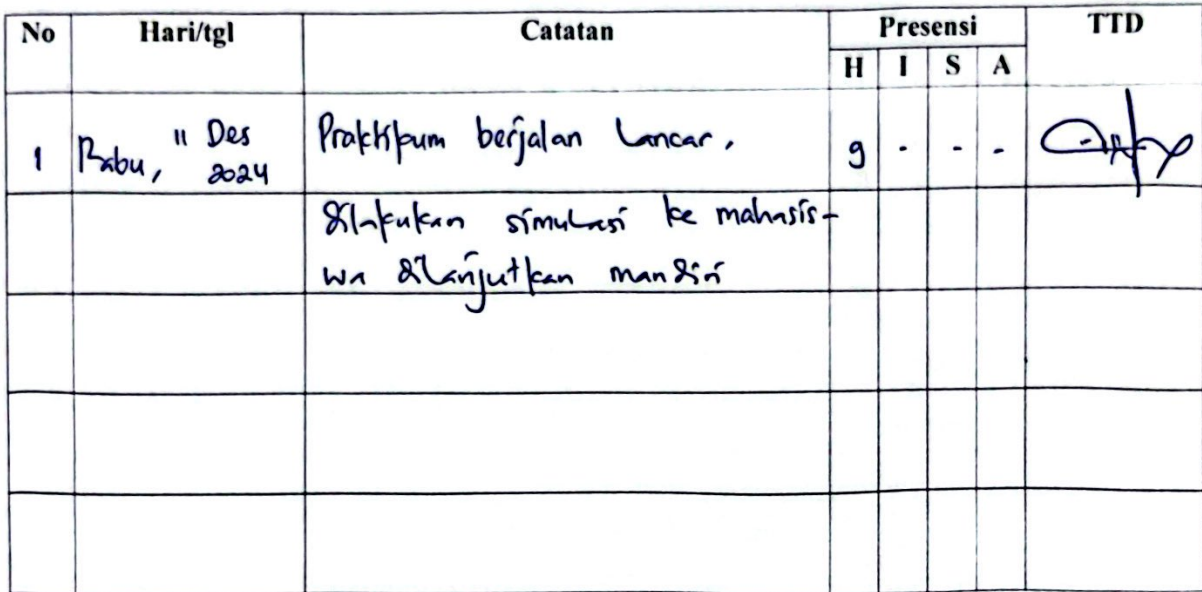 No Hari/tgl Catatan Presensi TTD
H I S A
1 Rabu, 11 Des 2024 Praktikum berjalan lancar, 9 - - -
dilakukan simulasi ke mahasis-
wa dilanjutkan mandiri